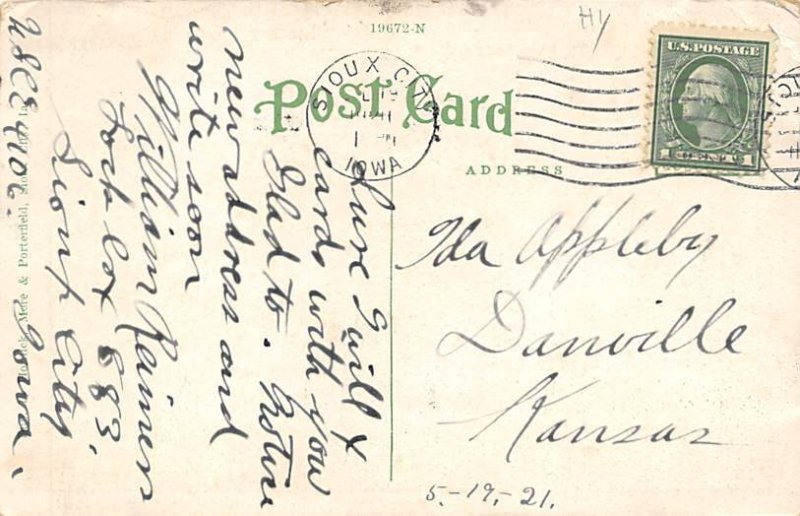 19672-N
HI
Post Card
SIOUX CITY
IOWA
U.S. POSTAGE
1 CENT 1
ADDRESS
Sure I will X
cards with you
Glad to. Notice
new address and
write soon
William Reimers
Lock box 683,
Sioux City,
Iowa.
& Porterfield,
Ida Appleby
Danville
Kansas
5-19-21.